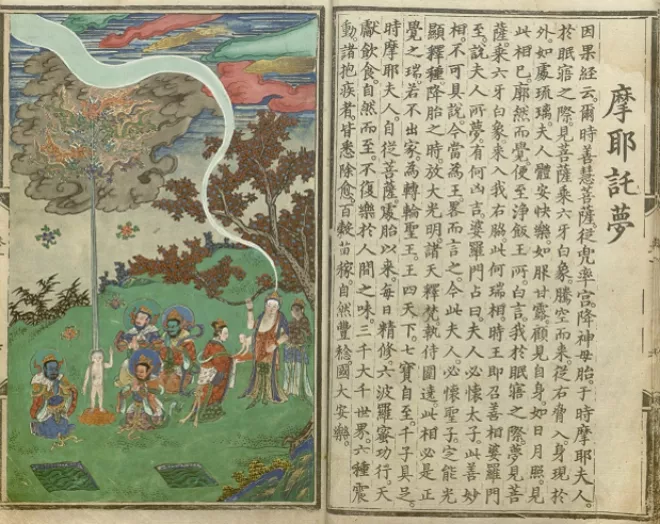 摩耶託夢
因果經云。爾時善慧菩薩。從兜率宮。降神母胎。于時摩耶夫人。
於眠寤之際。見菩薩乘六牙白象。騰空而來。從右脅入。身現於
外。如處琉璃。夫人體安快樂。如服甘露。顧見自身。如日月照。見
此相已。廓然而覺。便至淨飯王所。白言。我於眠寤之際。夢見菩
薩。乘六牙白象。來入我右脇。此何瑞相。時王即召善相婆羅門
至。說夫人所夢。有何凶吉。婆羅門占曰。夫人必懷太子。此善妙
相。不可具說。今當為王畧而言之。今此夫人。必懷聖子。定能光
顯釋種。降胎之時。放大光明。諸天釋梵。執侍圍遶。此相必是正
覺之瑞。若不出家。為轉輪聖王。王四天下。七寶自至。千子具足。
時摩耶夫人。自從菩薩處胎以來。每日精修六波羅蜜功行。天
獻飲食。自然而至。不復樂於人間之味。三千大千世界。六種震
動。諸抱疾者。皆悉除愈。百穀苗稼。自然豐稔。國大安樂。